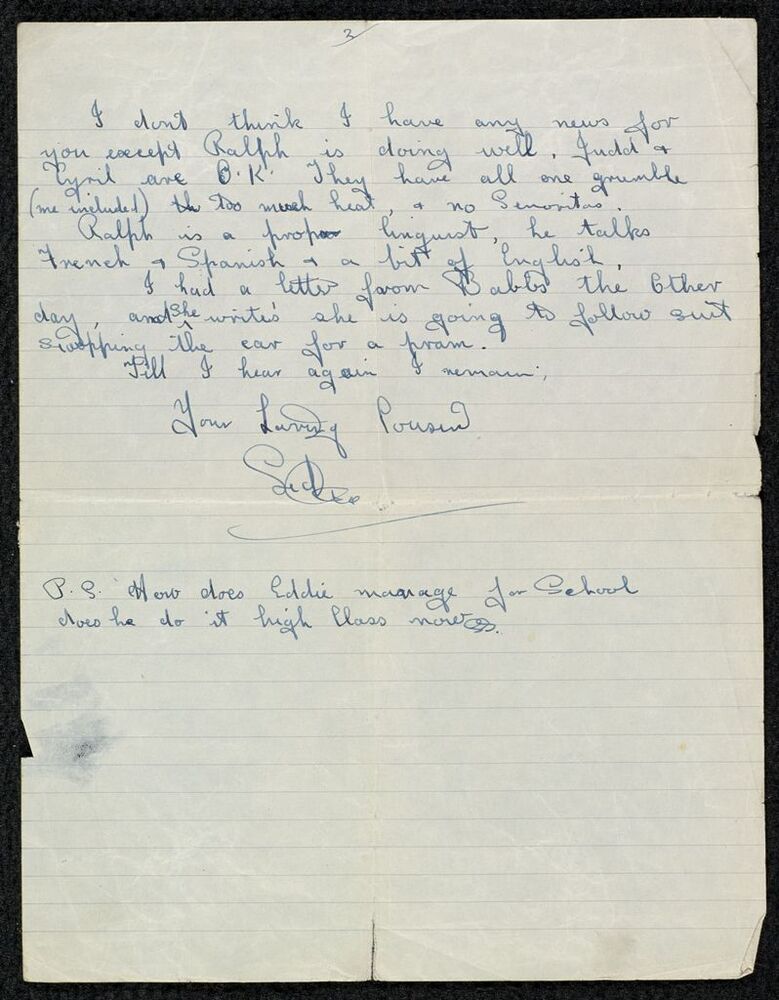 3
I dont think I have any news for
you except Ralph is doing well. Judd +
Cyril are O.K. They have all one grumble
(me included) too much heat, & no Senoritas.
Ralph is a proper linguist, he talks
French + Spanish + a bit of English.
I had a letter from Babbs the Other
day, and she writes she is going to follow suit
swopping the car for a pram.
Till I hear again I remain,
Your Loving Cousin
Sid xxx
P.S. How does Eddie manage for School
does he do it high Class now